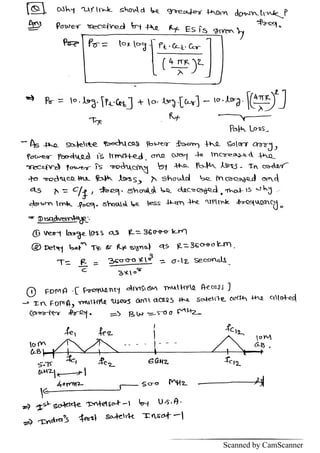 Q Why uplink should be greater than down link freq. ?
Ans) Power received by the Rx ES is given by
Pr = 10 log [ Pt . Gt . Gr / (4πR/λ)² ]
⇒ Pr = 10. log. [Pt.Gt] + 10. log. [Gr] - 10. log. [(4πR/λ)²]
Tx Rx
Path Loss.
- As the satelite Produces Power from the Solar array,
Power Produced is limited. one way to increased the
received Power is reducing by the Path loss. In order
to reduce the Path loss, λ should be increased and
as λ = C/f, freq. should be decreased, that is why
down link freq. should be less than the uplink frequency.
* Disadvantage:
① Very large loss as R = 36000 km
② Delay betⁿ Tx & Rx signal as R = 36000 km.
T = R/C = 36000 x 10³ / 3x10⁸ = 0.12 seconds.
① FDMA - [Frequenty division multiple Access]
→ In FDMA, multiple users can access the satelite with the alloted
carrier freq. ⇒ BW = 500 MHz
fc1 fc2 fc12
10m 10M
G.B G.B.
fc1 fc2 6GHz fc12
5.75
GHz
40MHz 500 MHz
⇒ 1st satelite Intelsat-1 by U.S.A.
⇒ India's first satelite Insat-1
Scanned by CamScanner